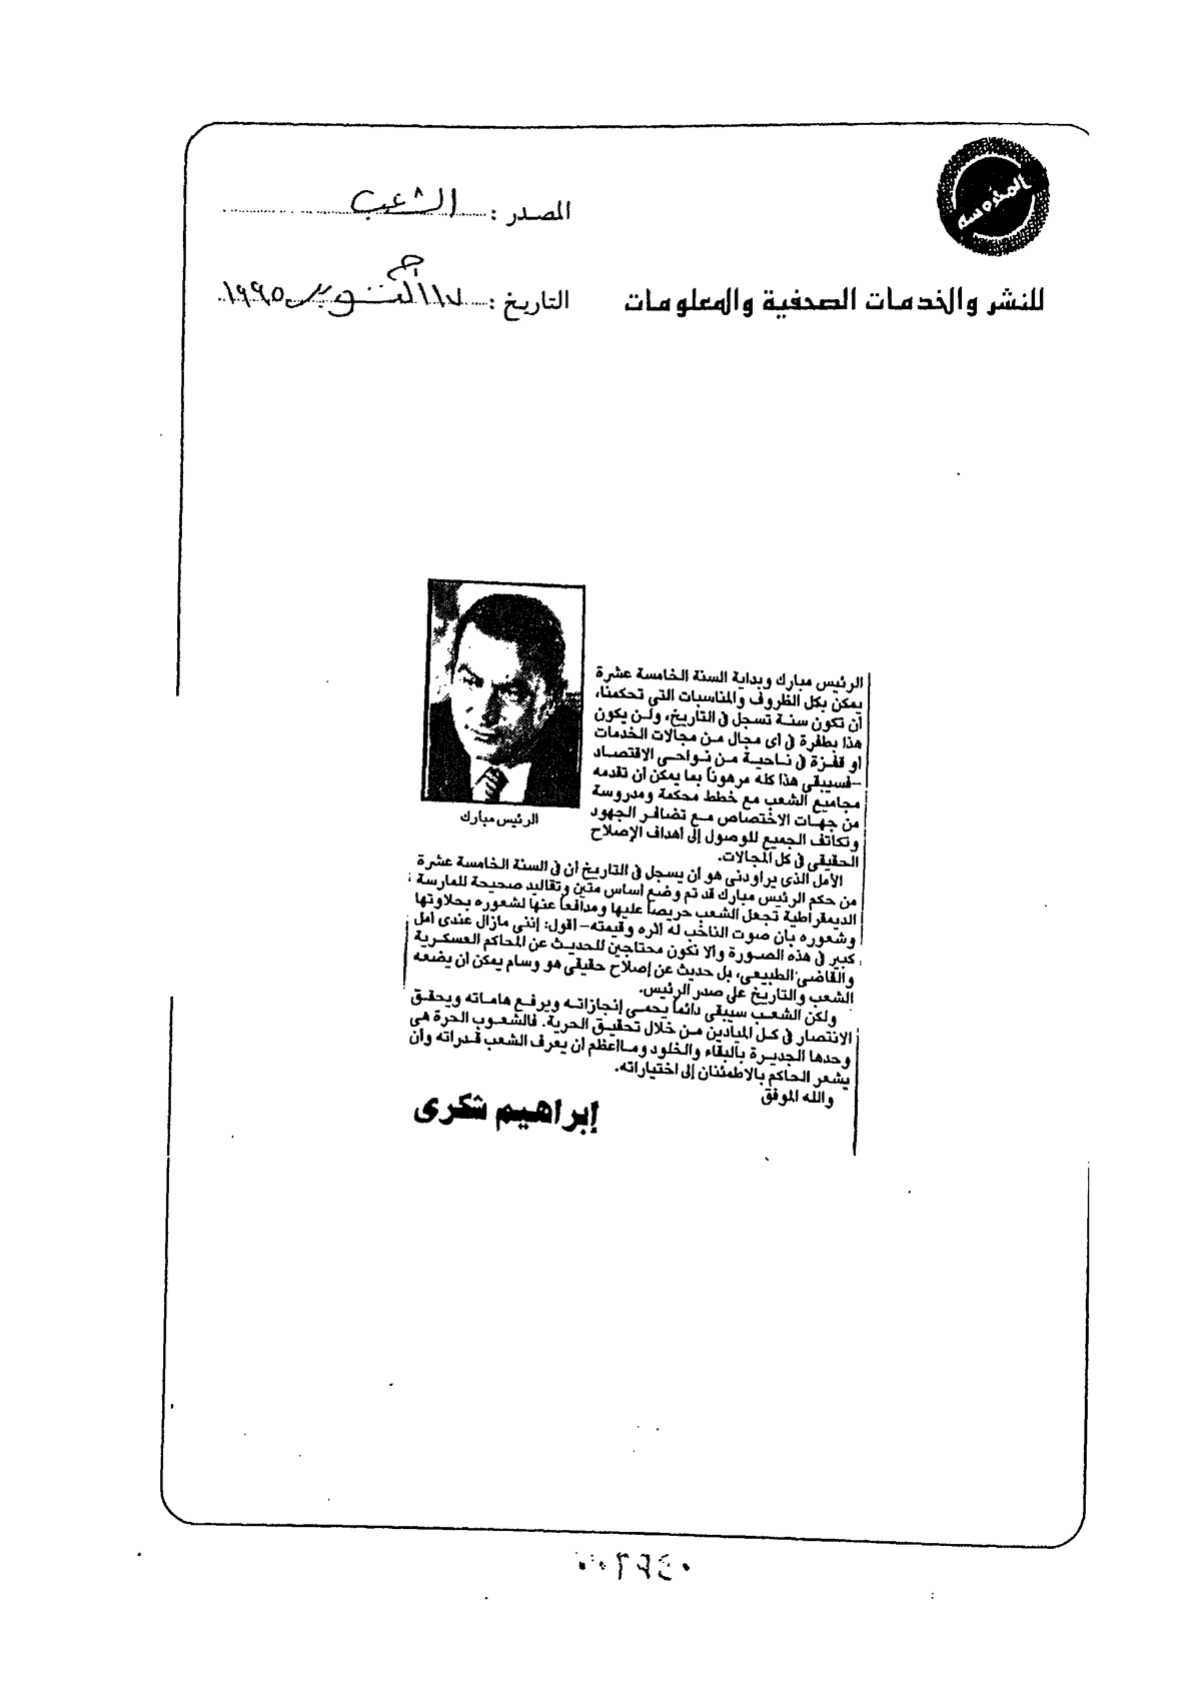 المحروسة
للنشر والخدمات الصحفية والمعلومات
المصدر : الشعب
التاريخ : ١٧ أكتوبر ١٩٩٥
الرئيس مبارك
الرئيس مبارك وبداية السنة الخامسة عشرة
يمكن بكل الظروف والمناسبات التى تحكمنا،
أن تكون سنة تسجل فى التاريخ، ولن يكون
هذا بطفرة فى أى مجال من مجالات الخدمات
أو قفزة فى ناحية من نواحى الاقتصاد
–فسيبقى هذا كله مرهوناً بما يمكن أن تقدمه
مجاميع الشعب مع خطط محكمة ومدروسة
من جهات الاختصاص مع تضافر الجهود
وتكاتف الجميع للوصول إلى أهداف الإصلاح
الحقيقى فى كل المجالات.
الأمل الذى يراودنى هو أن يسجل فى التاريخ أن فى السنة الخامسة عشرة
من حكم الرئيس مبارك قد تم وضع أساس متين وتقاليد صحيحة للممارسة
الديمقراطية تجعل الشعب حريصاً عليها ومدافعاً عنها لشعوره بحلاوتها
وشعوره بأن صوت الناخب له أثره وقيمته– أقول: إننى مازال عندى أمل
كبير فى هذه الصورة وألا نكون محتاجين للحديث عن المحاكم العسكرية
والقاضى الطبيعى، بل حديث عن إصلاح حقيقى هو وسام يمكن أن يضعه
الشعب والتاريخ على صدر الرئيس.
ولكن الشعب سيبقى دائماً يحمى إنجازاته ويرفع هاماته ويحقق
الانتصار فى كل الميادين من خلال تحقيق الحرية. فالشعوب الحرة هى
وحدها الجديرة بالبقاء والخلود وما أعظم أن يعرف الشعب قدراته وأن
يشعر الحاكم بالاطمئنان إلى اختياراته.
والله الموفق
إبراهيم شكرى